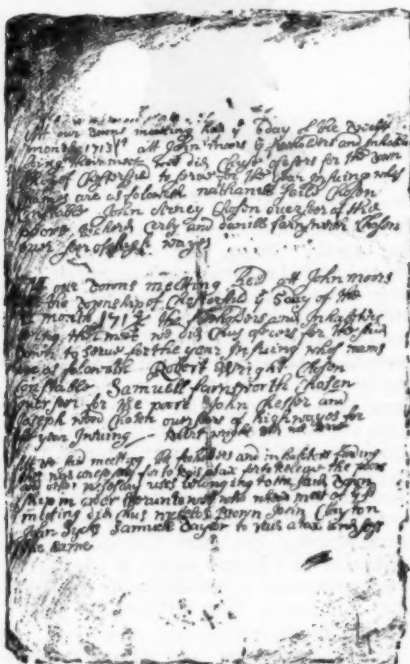 Att our towns meeting held ye 6 day of the
month 1713/4 att John moors ye freholders and Inhabitan
being then meet we did Chuse ofesers for the town
ship of Chesterfeild to serve for the year Insuing whos
names are as foloweth nathaniel Chosen
Constable John Chosen overseer of the
poore Richard and daniell farnsworth Chosen
overseer of high wayes
Att our towns meeting held att John moors
the township of Chesterfeild ye 5 day of the
month 171 the freholders and Inhabiters
being then meet we did Chus ofecers for the said
town to serve for the year Insuing whos nams
are as foloweth Robert Wright Chosen
Constable Samuell farnsworth Chosen
overseer for the poore John Chester and
Joseph wood Chosen overseers of highwayes for
the year Insuing Robert wright did not serve
att this meeting the freholders and inhabiters finding
it was nesesary for to Rais a tax for to Releive the poore
and other nesesary uses belonging to the said town
ship in order thereunto we who when meet att this
meeting did Chus nickolos Brown John Clayton
John Samuell to Rais a tax and
the same